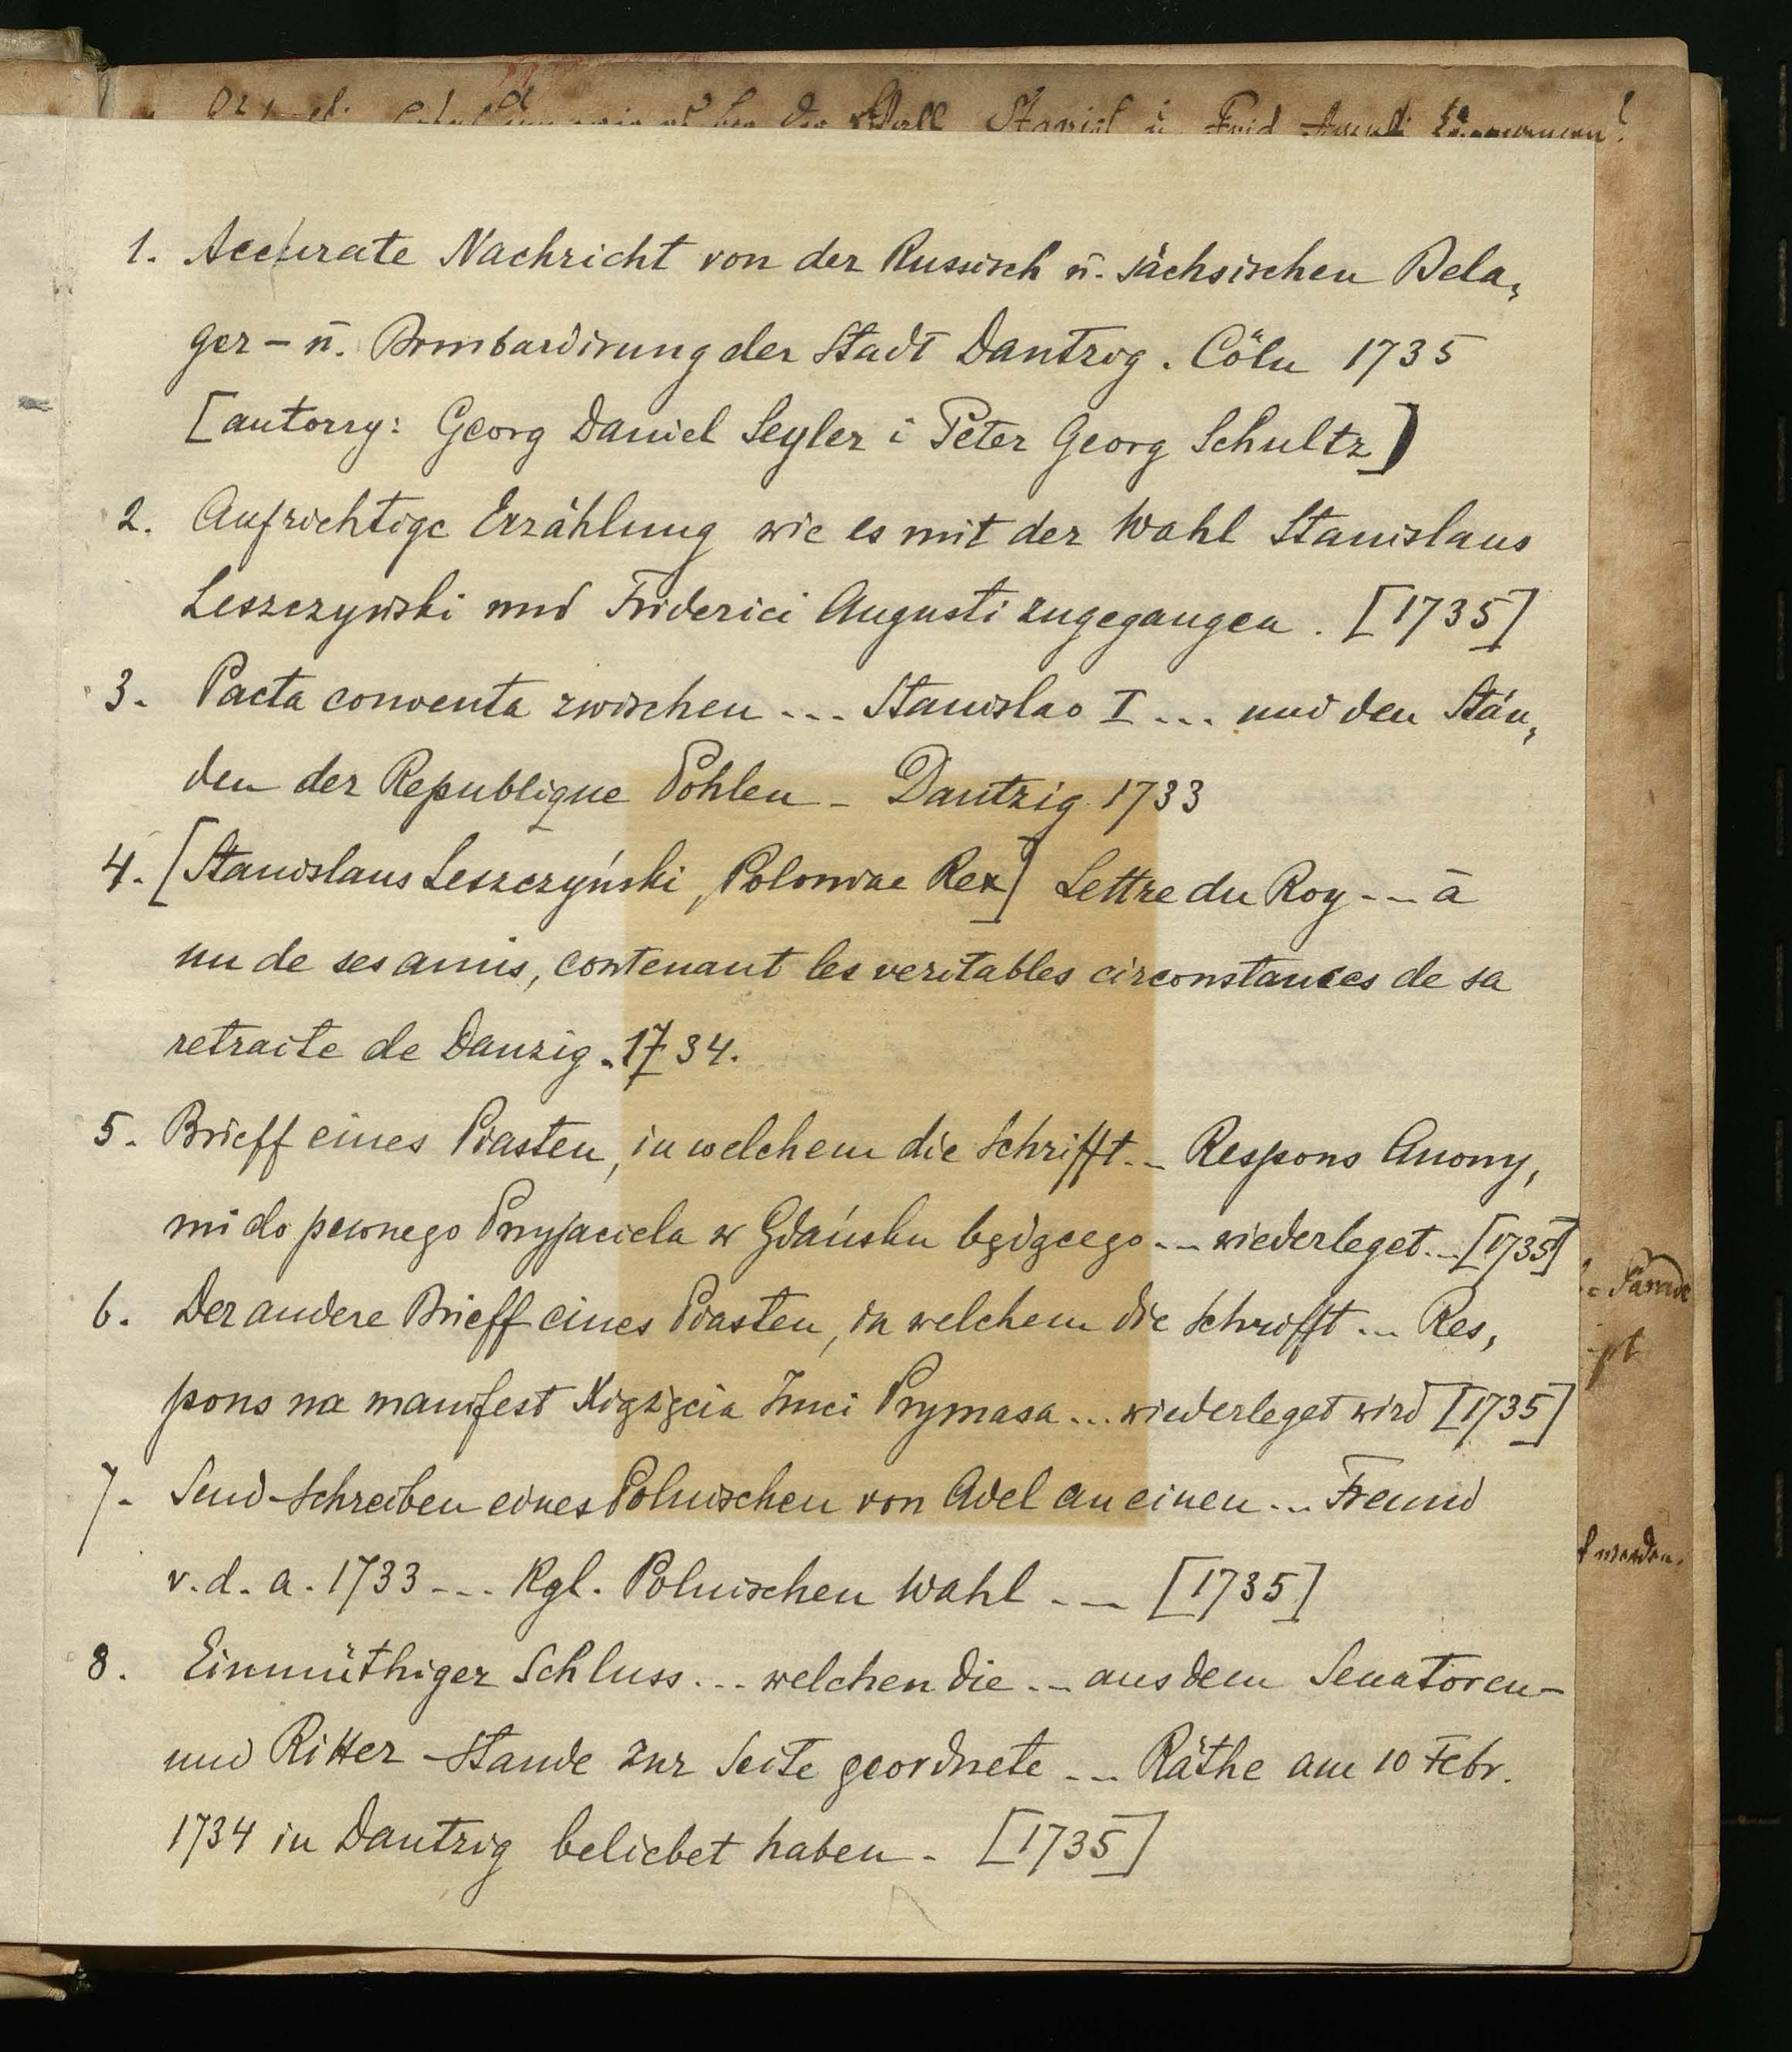 1. Accurate Nachricht von der Russisch ū. sächsischen Bela,
ger – ū. Bombardirung der Stadt Dantzig. Cöln 1735
[autorzy: Georg Daniel Seyler i Peter Georg Schultz]
2. Aufrichtige Erzählung wie es mit der Wahl Stanislaus
Leszczynski und Friderici Augusti zugegangen. [1735]
3. Pacta conventa zwischen ... Stanislao I ... und den Stän,
den der Republique Pohlen – Dantzig 1733
4. [Stanislaus Leszczyński, Poloniae Rex] Lettre du Roy ... à
un de ses amis, contenant les veritables circonstances de sa
retraite de Danzig. 1734.
5. Brieff eines Piasten, in welchem die Schrifft... Respons Anony,
mi do pewnego Przyjaciela w Gdańsku będącego ... wiederleget... [1735]
6. Der andere Brieff eines Piasten, in welchem die Schrifft ... Res,
pons na manifest Xiążęcia Jmci Prymasa ... wiederleget wird [1735]
7. Send-Schreiben eines Polnischen von Adel an einen ... Freund
v. d. a. 1733 ... Kgl. Polnischen Wahl ... [1735]
8. Einmüthiger Schluss ... welchen die ... aus dem Senatoren–
und Ritter-Stande zur Seite geordnete ... Räthe am 10 Febr.
1734 in Dantzig beliebet haben. [1735]